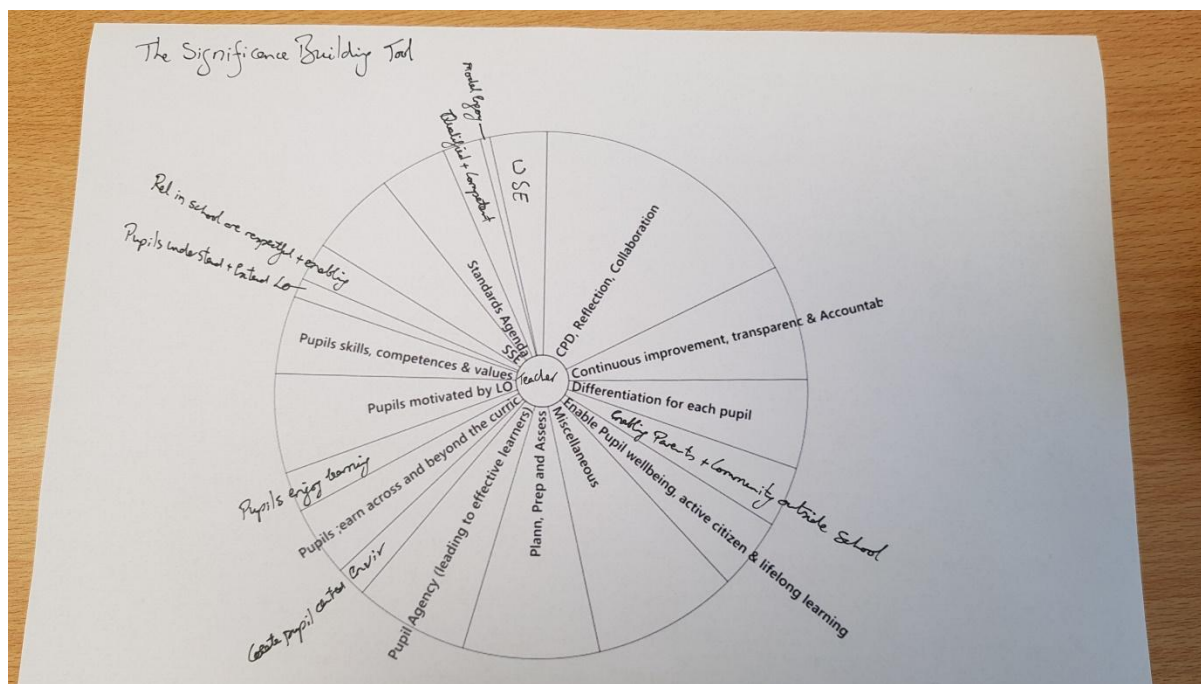 The Significance Building Tool
Model Agency
Qualified + Competent
WSE
CPD, Reflection, Collaboration
Continuous improvement, transparenc & Accountab
Differentiation for each pupil
Enabling Parents + Community outside School
Enable Pupil wellbeing, active citizen & lifelong learning
Miscellaneous
Plann, Prep and Assess
Pupil Agency (leading to effective learners)
Create pupil centred Envir
Pupils ;earn across and beyond the curric
Pupils enjoy learning
Pupils motivated by LO
Pupils skills, competences & values
Pupils understand + Extend LO
Rel in school are respectful + enabling
SSE
Standards Agenda
Teacher